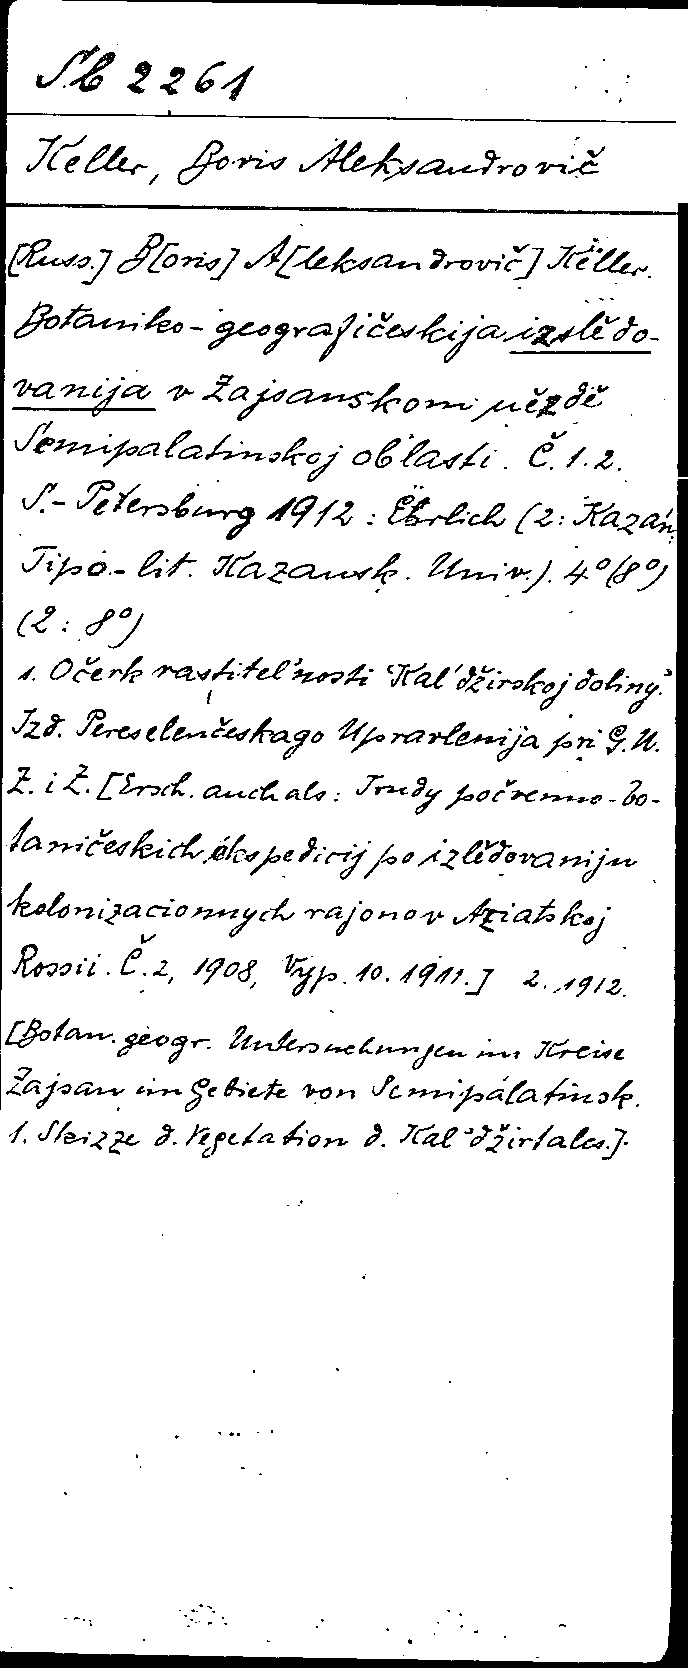 Sb 2261
Keller, Boris Aleksandrovič
[Russ.] B[oris] A[leksandrovič] Keller.
Botaniko-geografičeskija izslědo-
vanija v Zajsanskom uězdě
Semipalatinskoj oblasti. Č. 1. 2.
S.-Petersburg 1912: Ėhrlich (2: Kazań:
Tipo.-lit. Kazansk. Univ.). 4° (8°)
(2: 8°)
1. Očerk rastitel'nosti Kal'džirskoj doliny.
Izd. Pereselenčeskago Upravlenija pri G. U.
Z. i Z. [Ersch. auch als: Trudy počvenno-bo-
taničeskich ėkspedicij po izlědovaniju
kolonizacionnych rajonov Aziatskoj
Rossii. Č. 2, 1908, Vyp. 10. 1911.] 2. 1912.
[Botan. geogr. Untersuchungen im Kreise
Zajsan im Gebiete von Semipalatinsk.
1. Skizze d. Vegetation d. Kal'džirtales.].